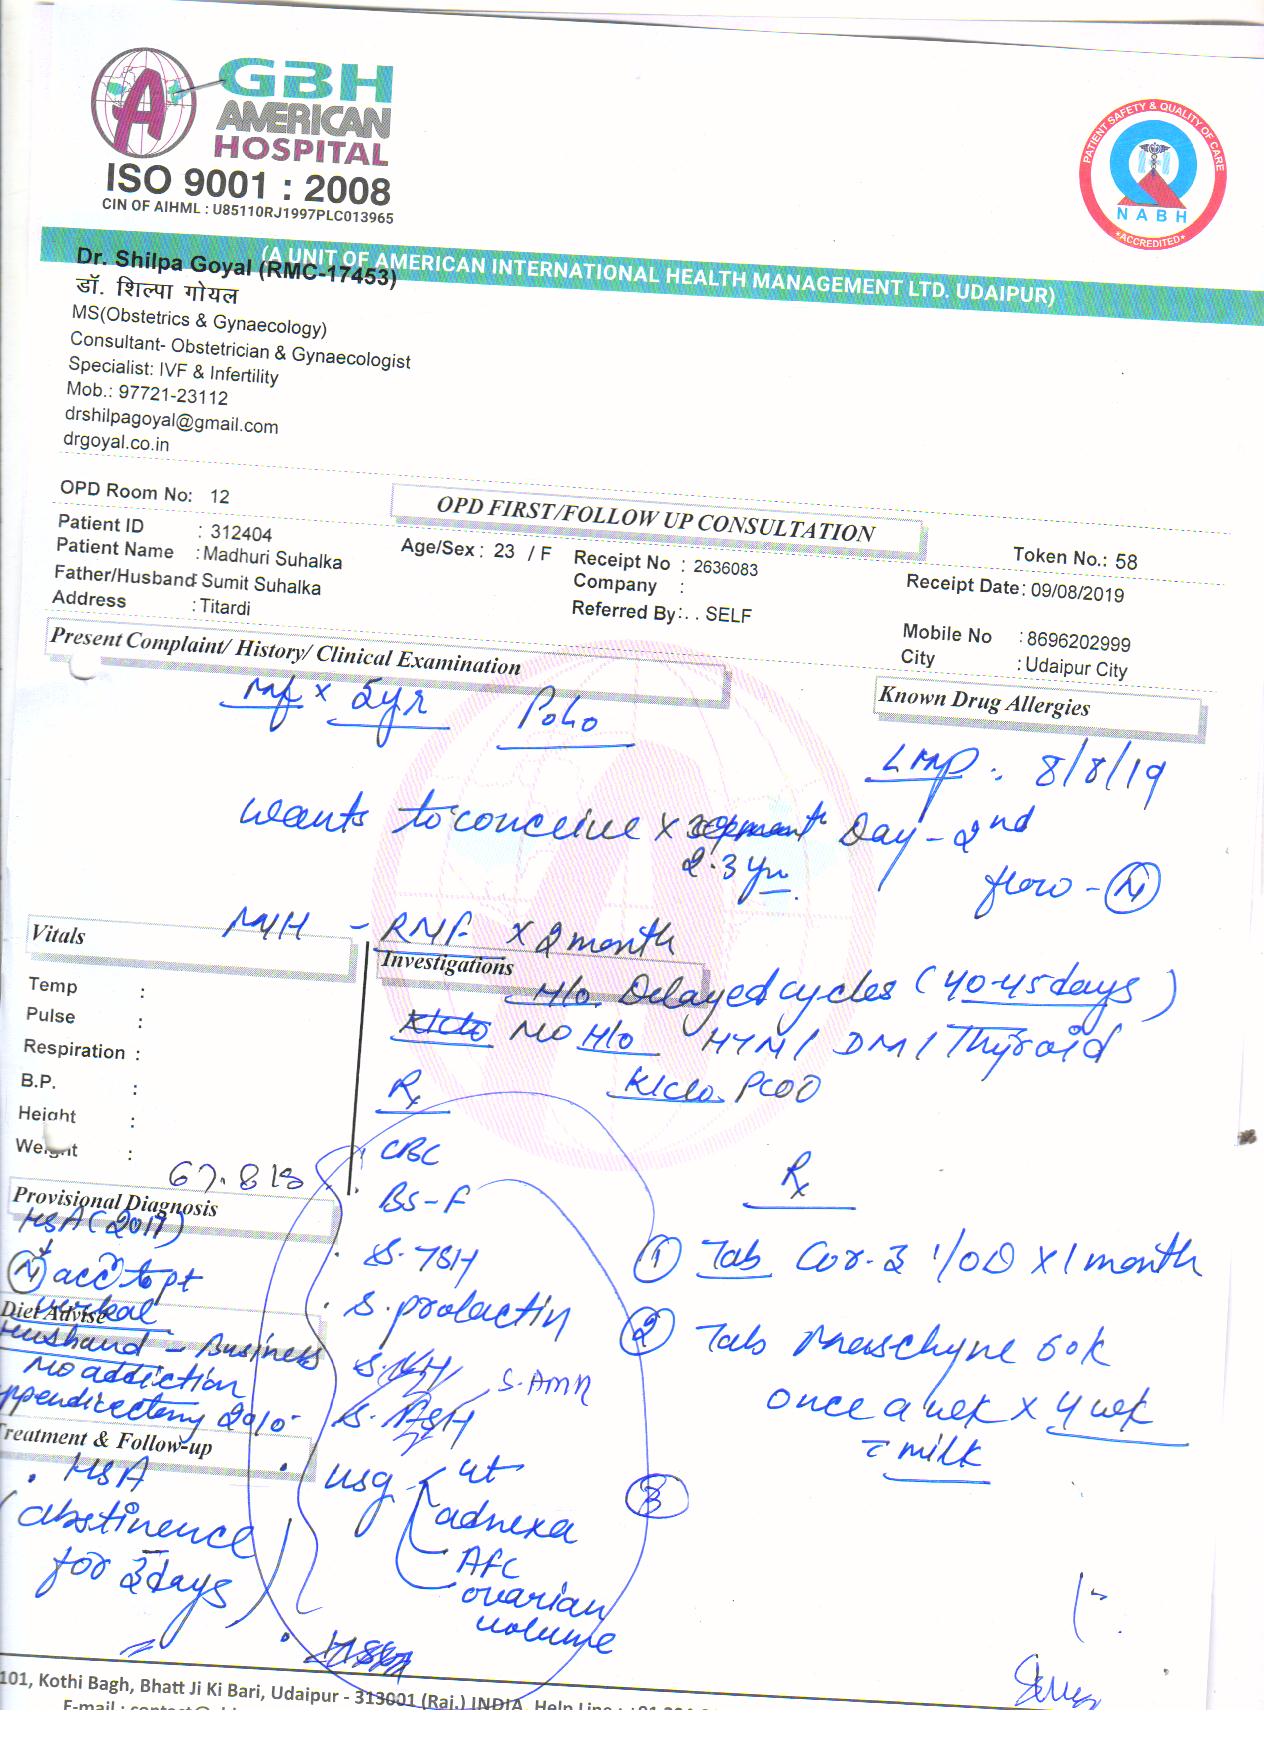 GBH
AMERICAN
HOSPITAL
ISO 9001 : 2008
CIN OF AIHML : U85110RJ1997PLC013965
PATIENT SAFETY & QUALITY OF CARE
NABH
*ACCREDITED*
(A UNIT OF AMERICAN INTERNATIONAL HEALTH MANAGEMENT LTD. UDAIPUR)
Dr. Shilpa Goyal (RMC-17453)
डॉ. शिल्पा गोयल
MS(Obstetrics & Gynaecology)
Consultant- Obstetrician & Gynaecologist
Specialist: IVF & Infertility
Mob.: 97721-23112
drshilpagoyal@gmail.com
drgoyal.co.in
OPD Room No: 12
OPD FIRST/FOLLOW UP CONSULTATION
Token No.: 58
Patient ID : 312404
Patient Name : Madhuri Suhalka
Age/Sex : 23 / F
Receipt No : 2636083
Receipt Date: 09/08/2019
Father/Husband: Sumit Suhalka
Company :
Address : Titardi
Referred By: . . SELF
Mobile No : 8696202999
City : Udaipur City
Present Complaint/ History/ Clinical Examination
Known Drug Allergies
Mf x 5yr P0L0
LMP : 8/8/19
wants to conceive x
2-3 yr.
Day - 2nd
flow - N
M/H - RMF x 2 month
Vitals
Investigations
H/o Delayed cycles (40-45 days)
NO H/o HTN / DM / Thyroid
K/c/o PCOD
Temp :
Pulse :
Respiration :
B.P. :
Height :
Weight :
67.8
Rx
CBC
BS-F
S. TSH
S. prolactin
S. LH
S. FSH
S. AMH
USG - ut
adnexa
AFC
ovarian
volume
Rx
1 Tab Cor-3 1/OD x 1 month
2 Tab 60k
once a wek x 4 wek
c milk
3
Provisional Diagnosis
HSA (2017)
N acc to pt
verbal
Diet Advise
Husband - Business
No addiction
appendicectomy 2010
Treatment & Follow-up
HSA
abstinence
for 3 days
101, Kothi Bagh, Bhatt Ji Ki Bari, Udaipur - 313001 (Raj.) INDIA, Help Line :
E-mail :